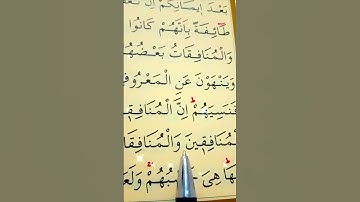 بَعْدَ اٖيمَانِكُمْ اِنْ نَعْفُ
طَٓائِفَةً بِاَنَّهُمْ كَانُوا
وَالْمُنَافِقَاتُ بَعْضُهُمْ
وَيَنْهَوْنَ عَنِ الْمَعْرُوفِ
فَنَسِيَهُمْ اِنَّ الْمُنَافِقٖينَ
الْمُنَافِقٖينَ وَالْمُنَافِقَاتِ
هِيَ حَسْبُهُمْ وَلَعَ